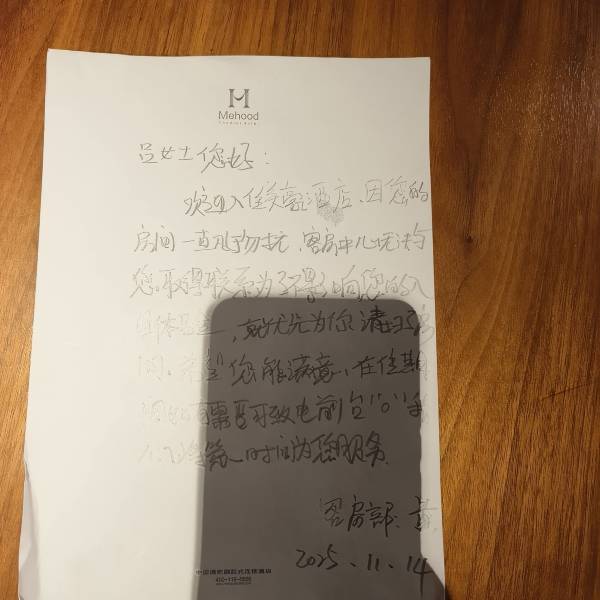 Mehood
吕女士您好:
欢迎入住美豪酒店,因您的
房间一直勿扰,客房中心无法与
您取得联系为了不影响您的入
住体验,就优先为你清扫房
间。希望您能满意、在住期
间如有需要可致电前台"0"我
们将第一时间为您服务.
客房部:
2025.11.14
400-119-8888